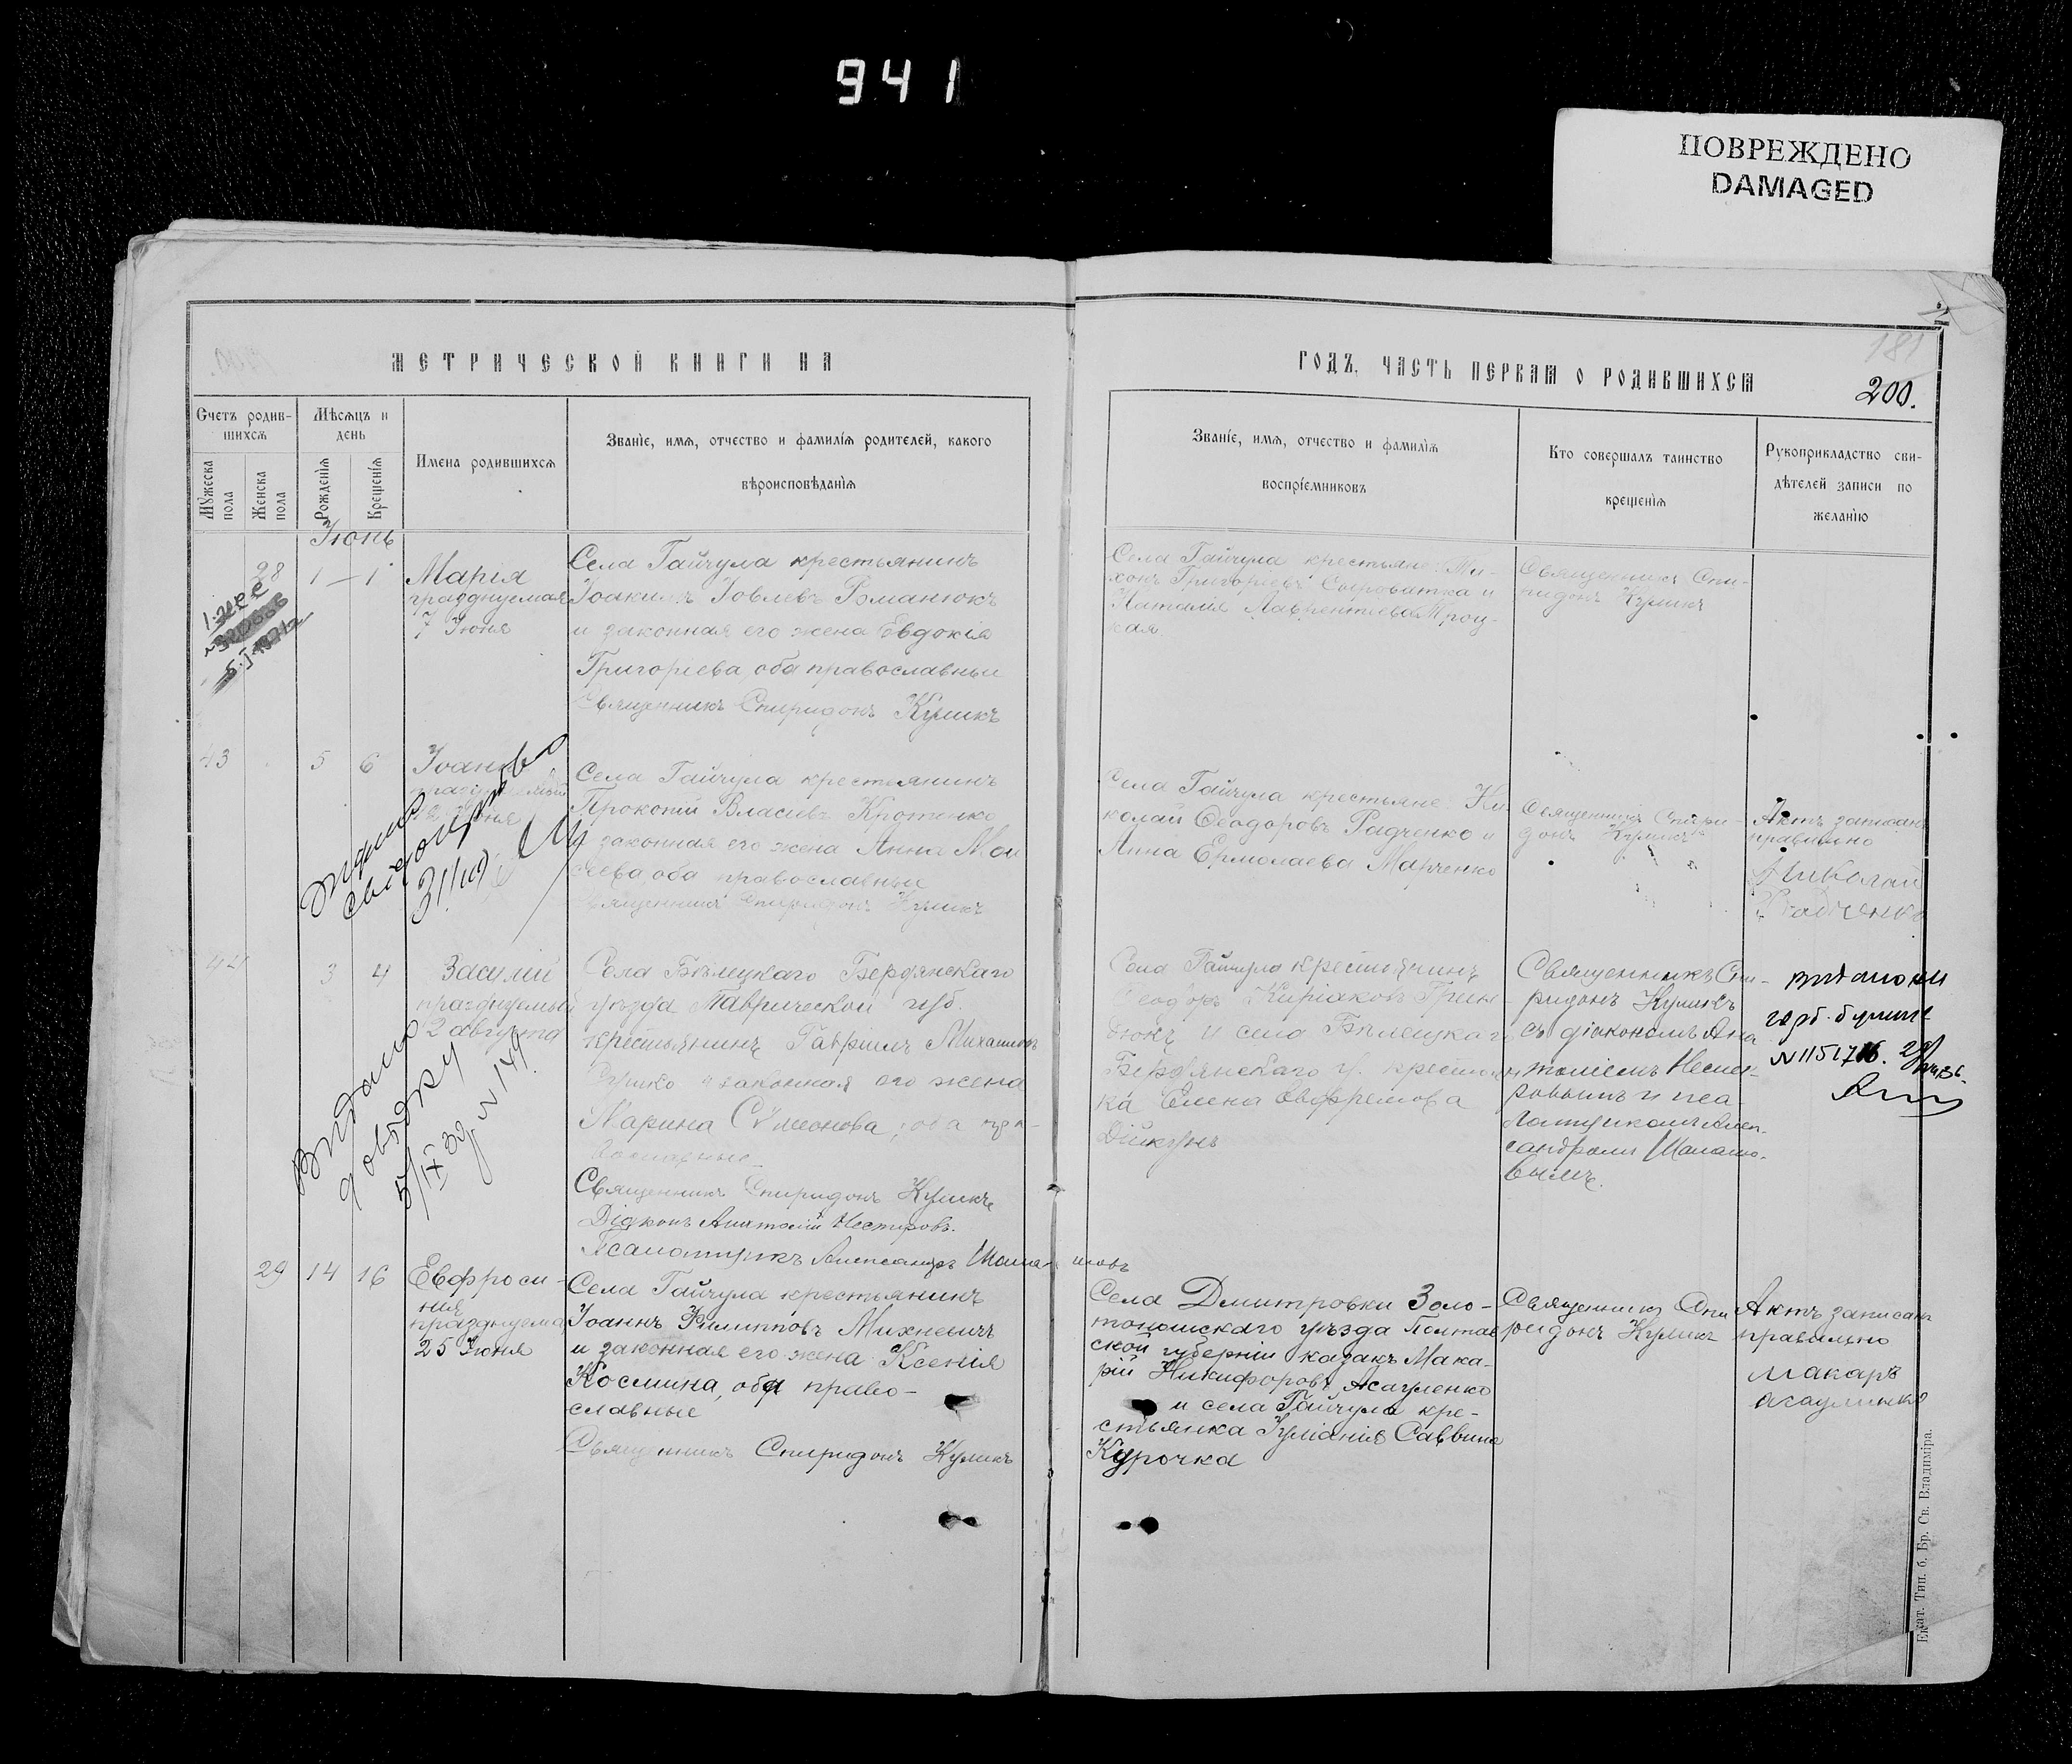 941
ПОВРЕЖДЕНО
DAMAGED
МЕТРИЧЕСКОЙ КНИГИ НА
ГОДЪ, ЧАСТЬ ПЕРВАЯ О РОДИВШИХСЯ
181
200.
Счетъ родив-
шихся
Мѣсяцъ и
день
Мужеска
пола
Женска
пола
Рожденія
Крещенія
Имена родившихся
Званіе, имя, отчество и фамилія родителей, какого
вѣроисповѣданія
Званіе, имя, отчество и фамилія
воспріемниковъ
Кто совершалъ таинство
крещенія
Рукоприкладство сви-
дѣтелей записи по
желанію
Іюнь
28
1 — 1
Марія
празднуемая
7 Іюня
Села Гайчула крестьянинъ
Іоакимъ Іовлевъ Романюкъ
и законная его жена Евдокія
Григорьева, оба православные
Священникъ Спиридонъ Куликъ
Села Гайчула крестьяне: Ти-
хонъ Григорьевъ Сыроватка и
Наталія Лаврентьева Троц-
кая.
Священникъ Спи-
ридонъ Куликъ
43
5
6
Іоаннъ
Села Гайчула крестьянинъ
Прокопій Власивъ Кротенко
и законная его жена Анна Мои
сеева, оба православные
Священникъ Спиридонъ Куликъ
31/10
Села Гайчула крестьяне: Ни
колай Ѳеодоровъ Радченко и
Анна Ермолаева Марченко
Священникъ Спири-
донъ Куликъ
Актъ записанъ
правильно
Николай
Радченко
44
3
4
празднуемый
2 августа
Села Бѣлецкаго Бердянскаго
уѣзда Таврической губ.
крестьянинъ Гавриилъ Михаиловъ
и законная его жена
Марина Симеонова, оба пра-
вославные
Священникъ Спиридонъ Куликъ
Діаконъ Анатолій Нестеровъ.
Псаломщикъ Александръ
видано
довідку
5/IX 39 N 149
Села Гайчула крестьянинъ
Ѳеодоръ Киріаковъ Грин-
дюкъ и села Бѣлецкаго
Бердянскаго у. крестьян
ка Елена Евфремова
Дійкунъ
Священникъ Спи-
ридонъ Куликъ
съ діакономъ Ана
толіемъ Несте-
ровымъ и пса-
ломщикомъ Алек-
сандромъ
герб. бумаге
N 115171
29
14
16
Евфроси-
нія
празднуемая
25 Іюня
Села Гайчула крестьянинъ
Іоаннъ Филипповъ Михневичъ
и законная его жена Ксенія
Космина, оба право-
славные
Священникъ Спиридонъ Куликъ
Села Дмитровки Золо-
тоношскаго уѣзда Полтав
ской губерніи казакъ Мака-
рій Никифоровъ
и села Гайчула кре-
стьянка Іуліанія Саввина
Курочка
Священникъ Спи
ридонъ Куликъ
Актъ записанъ
правильно
Макаръ
Екат. Тип. б. Бр. Св. Владиміра.